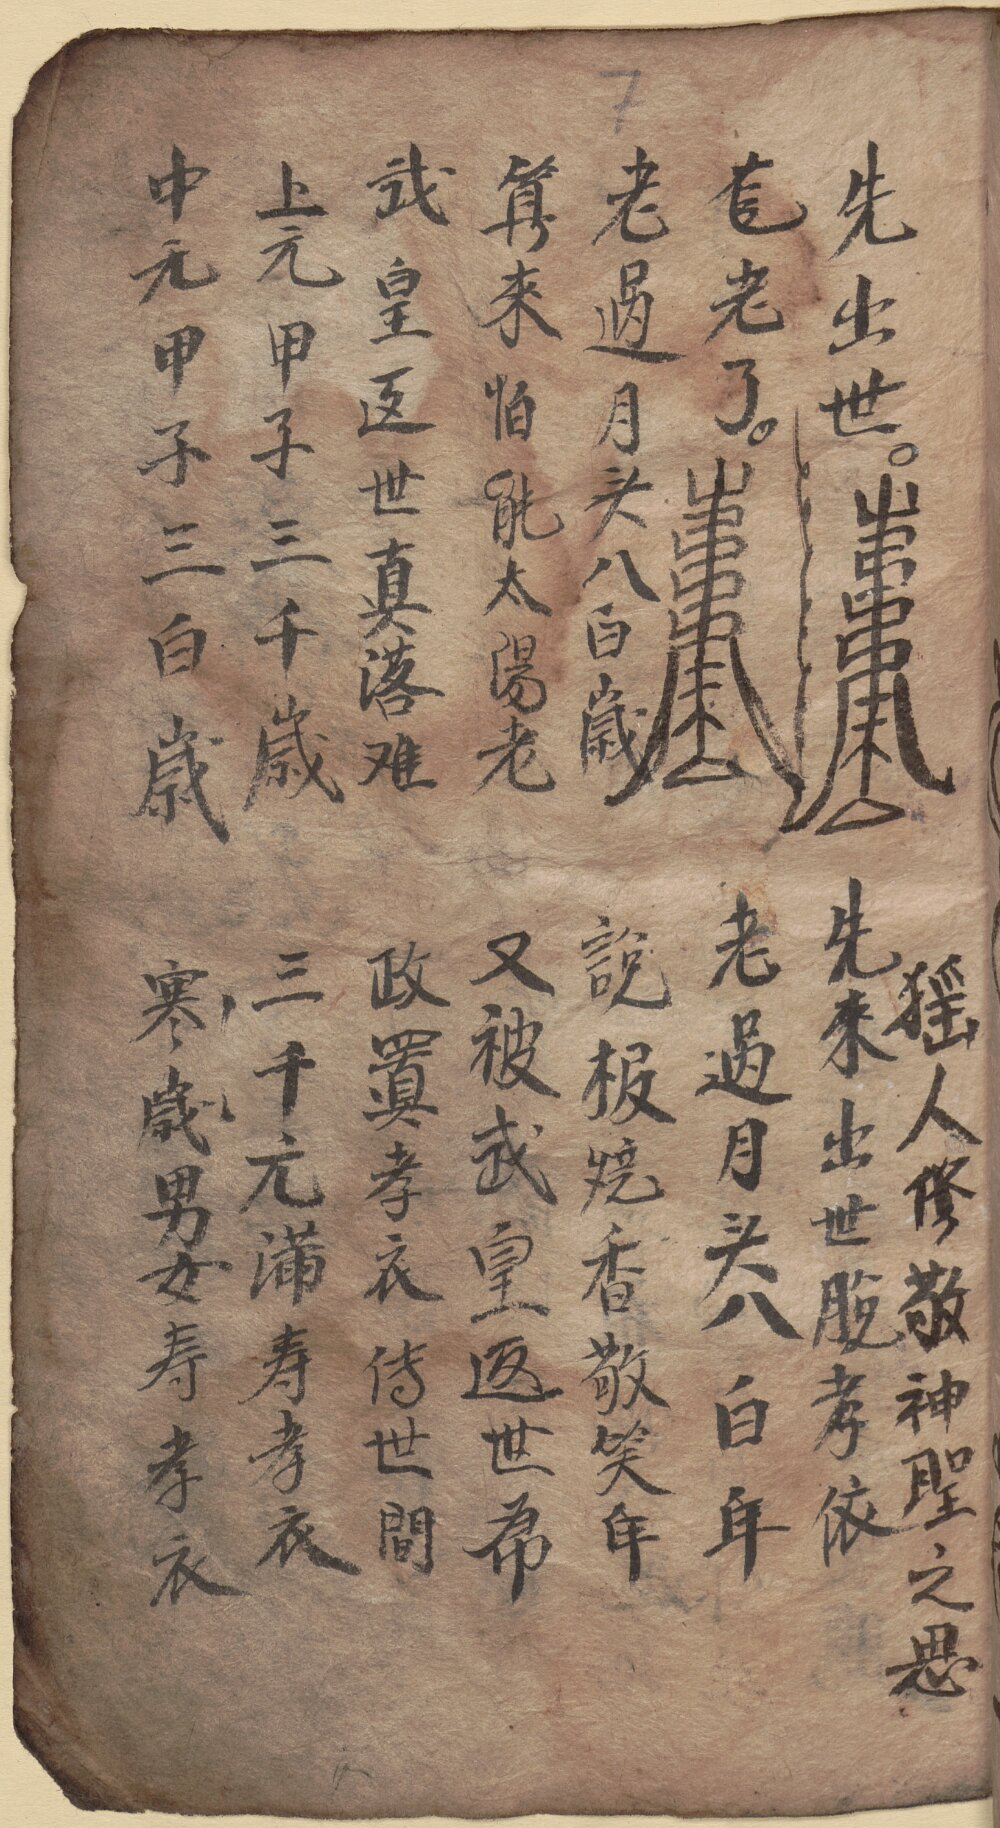 7
猺人修敬神聖之恩
先出世。
先来出世脫孝依
老了。
老過月头八白年
老過月头八百歲
說板燒香敬笑年
筭來怕能太陽老
又被武皇返世希
武皇返世真落难
政置孝衣傳世間
上元甲子三千歲
三千元满寿孝衣
中元甲子三白歲
寒歲男女寿孝衣